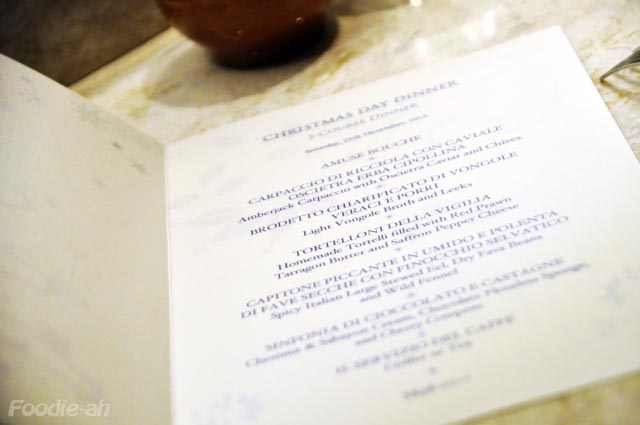 CHRISTMAS DAY DINNER
5-COURSE DINNER
Saturday, 25th December, 2010
AMUSE BOUCHE
CARPACCIO DI RICCIOLA CON CAVIALE
OSCIETRA ERBA CIPOLLINA
Amberjack Carpaccio with Oscietra Caviar and Chives
BRODETTO CHIARIFICATO DI VONGOLE
VERACI E PORRI
Light Vongole Broth and Leeks
TORTELLONI DELLA VIGILIA
Homemade Tortelli filled with Red Prawn
Tarragon Butter and Saffron Pepper Cheese
CAPITONE PICCANTE IN UMIDO E POLENTA
DI FAVE SECCHE CON FINOCCHIO SELVATICO
Spicy Italian Large Stewed Eel, Dry Fava Beans
and Wild Fennel
SINFONIA DI CIOCCOLATO E CASTAGNE
Chestnut & Sabayon Cream, Chocolate Flourless Sponge,
and Cherry Compote
IL SERVIZIO DEL CAFFE
Coffee or Tea
Foodie-ah